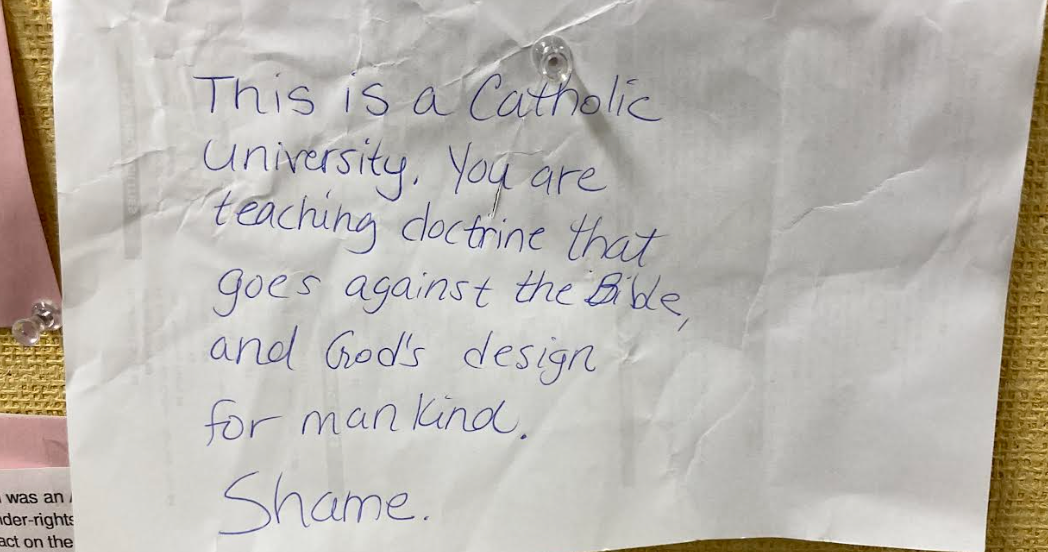 This is a Catholic
University. You are
teaching doctrine that
goes against the Bible,
and God's design
for mankind.
Shame.
was an
der-rights
act on the